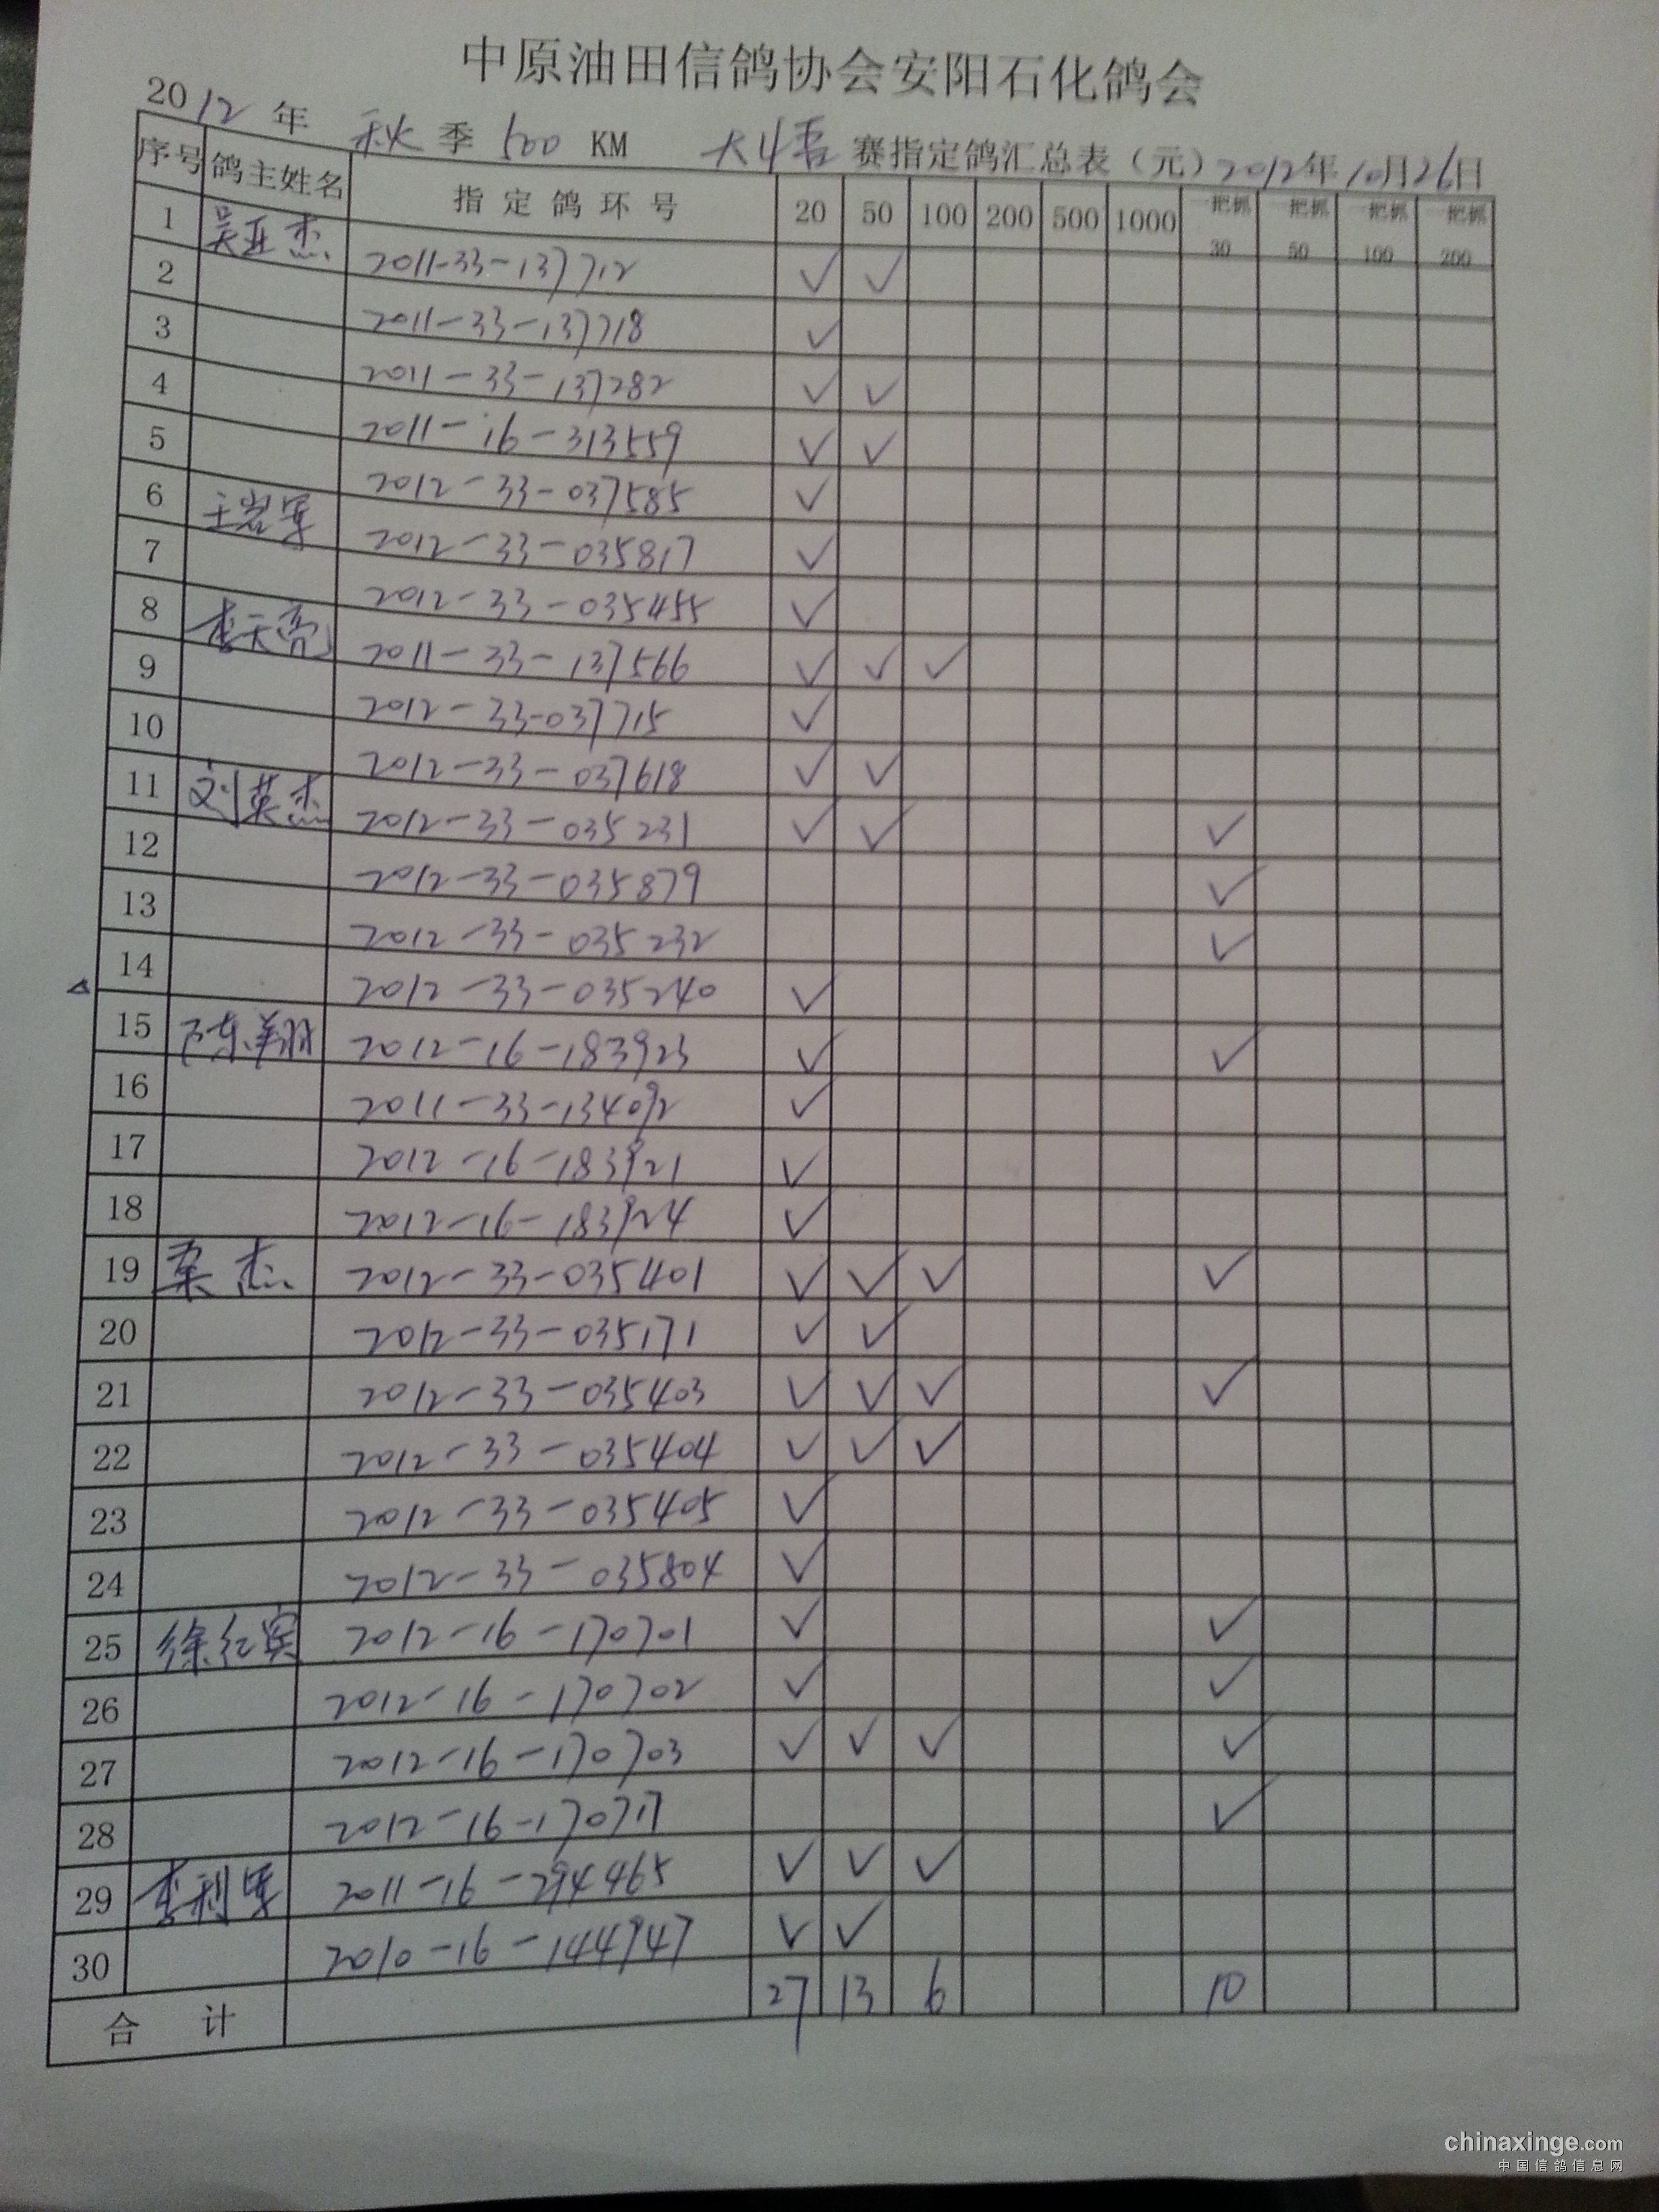 中原油田信鸽协会安阳石化鸽会
2012年 秋季 500 KM 大悟 赛指定鸽汇总表（元）2012年10月26日
序号 鸽主姓名 指定鸽环号 20 50 100 200 500 1000 一把抓30 一把抓50 一把抓100 一把抓200
1 吴亚杰 2011-33-137712 ✓ ✓
2 2011-33-137718 ✓
3 2011-33-137282 ✓ ✓
4 2011-16-313559 ✓ ✓
5 2012-33-037585 ✓
6 王岩军 2012-33-035817 ✓
7 2012-33-035455 ✓
8 李天亮 2011-33-137566 ✓ ✓ ✓
9 2012-33-037715 ✓
10 2012-33-037618 ✓ ✓
11 刘英杰 2012-33-035231 ✓ ✓ ✓
12 2012-33-035879 ✓
13 2012-33-035232 ✓
14 2012-33-035240 ✓
15 陈翔 2012-16-183923 ✓ ✓
16 2011-33-134092 ✓
17 2012-16-183921 ✓
18 2012-16-183924 ✓
19 桑杰 2012-33-035401 ✓ ✓ ✓ ✓
20 2012-33-035171 ✓ ✓
21 2012-33-035403 ✓ ✓ ✓ ✓
22 2012-33-035404 ✓ ✓ ✓
23 2012-33-035405 ✓
24 2012-33-035804 ✓
25 徐红宾 2012-16-170701 ✓ ✓
26 2012-16-170702 ✓ ✓
27 2012-16-170703 ✓ ✓ ✓ ✓
28 2012-16-170717 ✓
29 李利军 2011-16-294465 ✓ ✓ ✓
30 2010-16-144947 ✓ ✓
合计 27 13 6 10
chinaxinge.com
中国信鸽信息网